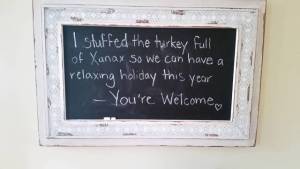 I stuffed the turkey full
of Xanax so we can have a
relaxing holiday this year
—You're Welcome